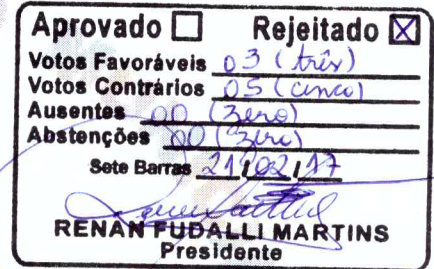 Aprovado ☐ Rejeitado ☒
Votos Favoráveis 03 (três)
Votos Contrários 05 (cinco)
Ausentes 00 (zero)
Abstenções 00 (zero)
Sete Barras 21/02/17
RENAN FUDALLI MARTINS
Presidente